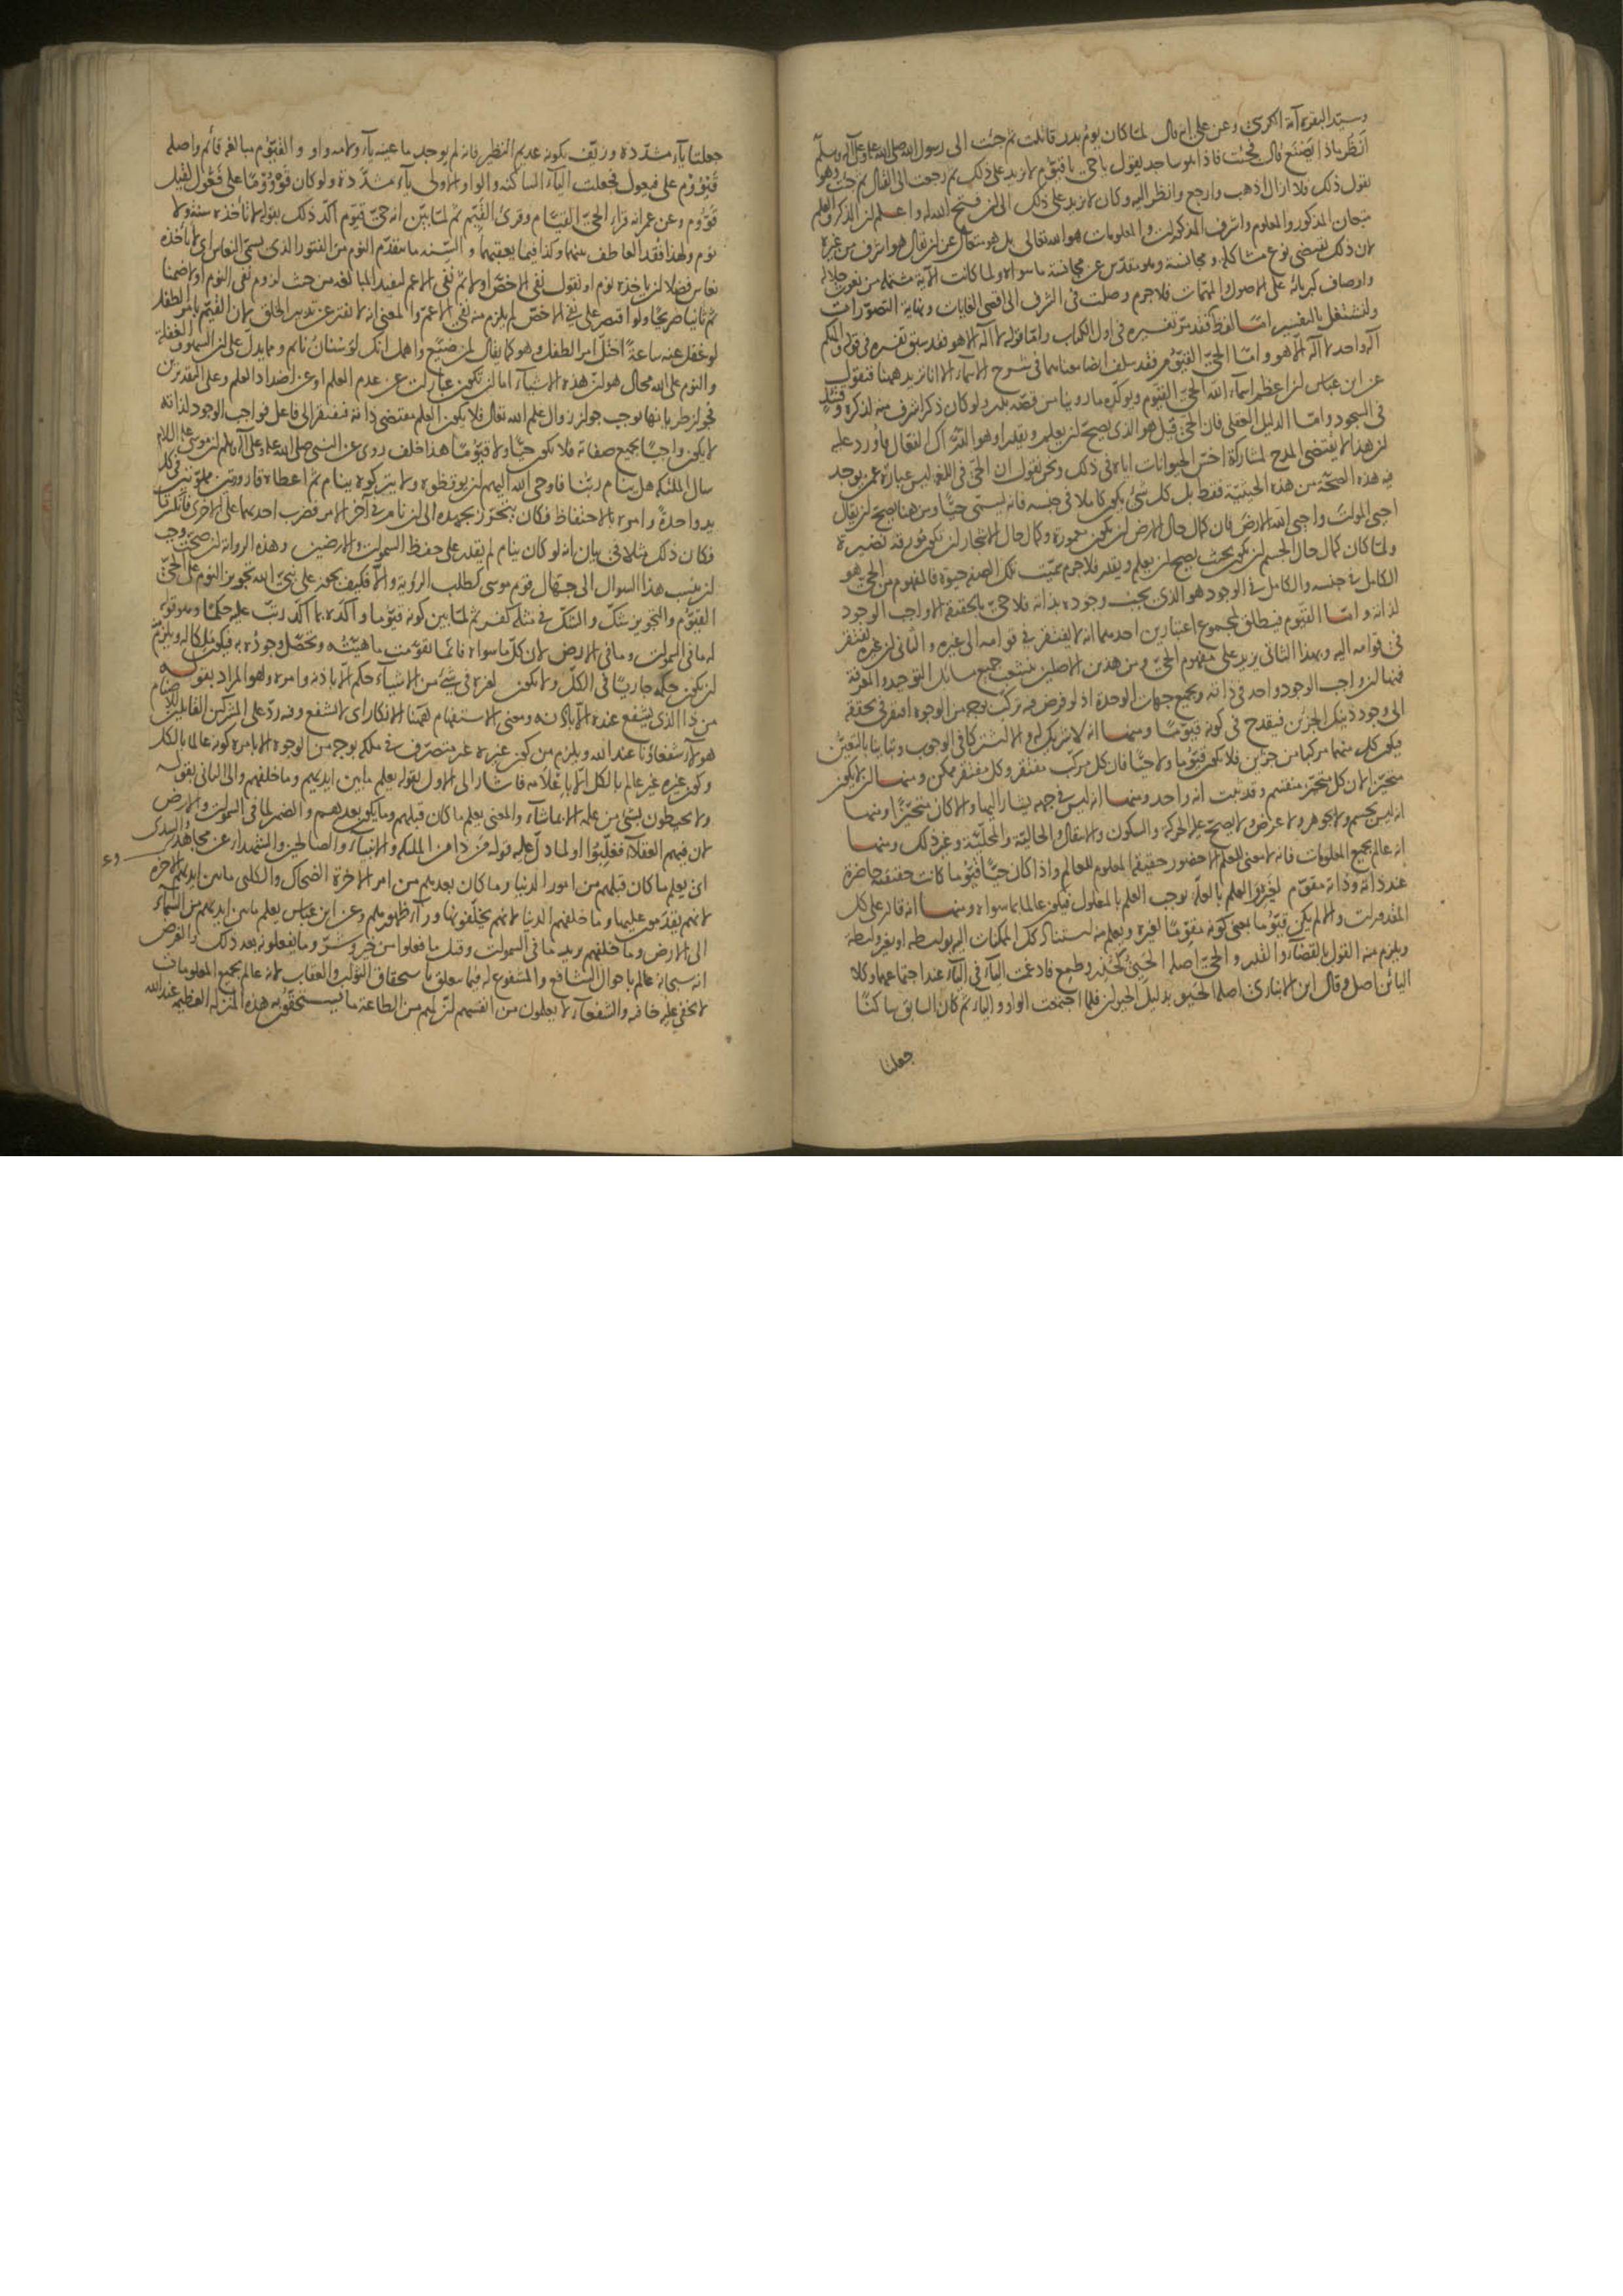 وسيد البقرة آية الكرسي وعن علي انه قال لما كان يوم بدر قاتلت ثم جئت الى رسول الله صلى الله عليه وعلى آله وسلم
انظر ماذا يصنع قال فجئت فاذا هو ساجد يقول يا حي يا قيوم لا يزيد على ذلك ثم رجعت الى القتال ثم جئت وهو
يقول ذلك فلا ازال اذهب وارجع وانظر اليه وكان لا يزيد على ذلك الى ان فتح الله له واعلم ان الذكر والعلم
يتبعان المذكور والمعلوم واشرف المذكورات والمعلومات هو الله تعالى بل هو متعال عن ان يقال هو اشرف من غيره
لان ذلك يقتضي نوع مشاكلة ومجانسة وهو مقدس عن مجانسة ما سواه ولما كانت الآية مشتملة من نعوت جلاله
واوصاف كبريائه على الاصول والمهمات فلا جرم وصلت في الشرف الى اقصى الغايات ونهاية التصورات
ولنشتغل بالتفسير اما لفظ الله فقد مر تفسيره في اول الكتاب واما قوله لا اله الا هو فقد سبق تفسيره في قوله والهكم
اله واحد لا اله الا هو واما الحي القيوم فقد سلف ايضا معناهما في شرح الاسماء الا انا نزيد ههنا فنقول
عن ابن عباس ان اعظم اسماء الله الحي القيوم ويؤكده ما روينا من قصة بدر ولو كان ذكر اشرف منه لذكره وقتئذ
في السجود واما الدليل العقلي فان الحي قيل هو الذي يصح ان يعلم ويقدر او هو الدراك الفعال فاورد عليه
ان هذا لا يقتضي المدح لمشاركة اخس الحيوانات اياه في ذلك ونحن نقول ان الحي في اللغة ليس عبارة عمن يوجد
فيه هذه الصحة من هذه الحيثية فقط بل كل شيء يكون كاملا في جنسه فانه يسمى حيا ومن هنا يصح ان يقال
احيي الموات واحيى الله الارض فان كمال حال الارض ان تكون معمورة وكمال حال الاشجار ان تكون مورقة نضيرة
ولما كان كمال حال الجسم ان يكون بحيث يصح ان يعلم ويقدر فلا جرم سميت تلك الصفة حيوة فالمفهوم من الحي هو
الكامل في جنسه والكامل في الوجود هو الذي يجب وجوده بذاته فلا حي بالحقيقة الا واجب الوجود
لذاته واما القيوم فيطلق لمجموع اعتبارين احدهما انه لا يفتقر في قوامه الى غيره والثاني ان غيره يفتقر
في قوامه اليه وبهذا الثاني يزيد على مفهوم الحي ومن هذين الاصلين ينشعب جميع مسائل التوحيد والمعرفة
فمنها ان واجب الوجود واحد في ذاته وبجميع جهات الوحدة اذ لو فرض فيه تركب بوجه من الوجوه افتقر في تحققه
الى وجود ذينك الجزئين فيقدح في كونه قيوما ومنها انه لا شريك له والا اشتركا في الوجوب وتباينا بالتعين
فيكون كل منهما مركبا من جزئين فلا يكون قيوما ولا حيا فان كل مركب مفتقر وكل مفتقر ممكن ومنها ان لا يكون
متحيزا لان كل متحيز منقسم وقد ثبت انه واحد ومنها انه ليس في جهة يشار اليها والا كان متحيزا ومنها
انه ليس بجسم ولا جوهر ولا عرض ولا يصح عليه الحركة والسكون والانتقال والحالية والمحلية وغير ذلك ومنها
انه عالم بجميع المعلومات فانه لا معنى للعلم الا حضور حقيقة المعلوم للعالم واذا كان حيا قيوما كانت حقيقته حاضرة
عند ذاته وذاته مقوم لغيره والعلم بالعلة يوجب العلم بالمعلول فيكون عالما بما سواه ومنها انه قادر على كل
المقدورات والا لم يكن قيوما بمعنى كونه مقوما لغيره ويعلم منه استناد كل الممكنات اليه بواسطة او بغير واسطة
ويلزم منه القول بالقضاء والقدر والحي اصله الحيي كحذر وطمع فادغمت الياء في الياء عند اجتماعهما وكلا
اليائين اصل وقال ابن الانباري اصله الحيو بدليل الحيوان فلما اجتمعت الواو والياء ثم كان السابق ساكنا
جعلنا
جعلتا ياء مشددة وزيف بكونه عديم النظير فانه لم يوجد ما عينه ياء ولامه واو والقيوم مبالغة قائم واصله
قيووم على فيعول فجعلت الياء الساكنة والواو الاولى ياء مشددة ولو كان قووما على فعول لقيل
قووم وعن عمر انه قرا الحي القيام وقرئ القيم ثم لما بين انه حي قيوم اكد ذلك بقوله لا تاخذه سنة ولا
نوم ولهذا فقد العاطف بينهما وكذا فيما يعقبهما والسنة ما يتقدم النوم من الفتور الذي يسمى النعاس اي لا ياخذه
نعاس فضلا ان ياخذه نوم او نقول نفى الاخص اولا ثم نفى الاعم ليفيد المبالغة من حيث لزوم نفي النوم اولا ضمنا
ثم ثانيا صريحا ولو اقتصر على نفي الاخص لم يلزم منه نفي الاعم والمعنى انه لا يفتر عن تدبير الخلق لان القيم بامر الطفل
لو غفل عنه ساعة اختل امر الطفل وهو كما يقال لمن ضيع واهمل انك لوسنان نائم ومما يدل على ان السهو والغفلة
والنوم على الله محال هو ان هذه الاشياء اما ان تكون عبارات عن عدم العلم او عن اضداد العلم وعلى التقديرين
فجواز طريانها يوجب جواز زوال علم الله تعالى فلا يكون العلم مقتضى ذاته فيفتقر الى فاعل فواجب الوجود لذاته
لا يكون واجبا بجميع صفاته فلا يكون حيا ولا قيوما هذا خلف روي عن النبي صلى الله عليه وعلى آله وسلم ان موسى عليه السلام
سال الملئكة هل ينام ربنا فاوحى الله اليهم ان يوقظوه ولا يتركوه ينام ثم اعطاه قارورتين مملوئتين في كل
يد واحدة وامره بالاحتفاظ فكان يتحرز بجهده الى ان نام في آخر الامر فضرب احديهما على الاخرى فانكسرتا
فكان ذلك مثلا في بيان انه لو كان ينام لم يقدر على حفظ السموات والارضين وهذه الرواية ان صحت وجب
ان ينسب هذا السوال الى جهال قوم موسى كطلب الرؤية والا فكيف يجوز على نبي الله تجويز النوم على الحي
القيوم والتجويز شك والشك في مثله كفر ثم لما بين كونه قيوما واكده بما اكد رتب عليه حكما وهو قوله
له ما في السموات وما في الارض لان كل ما سواه فانما تقومت ماهيته وتحصل وجوده به فيكون ملكا له ويلزم
ان يكون حكمه جاريا في الكل ولا يكون لغيره في شيء من الاشياء حكم الا باذنه وامره وهو المراد بقوله
من ذا الذي يشفع عنده الا باذنه ومعنى الاستفهام ههنا الانكار اي لا يشفع وفيه رد على المشركين القائلين للاصنام
هؤلاء شفعاؤنا عند الله ويلزم من كون غيره غير متصرف في ملكه بوجه من الوجوه الا بامره كونه عالما بالكل
وكون غيره غير عالم بالكل الا باعلامه فاشار الى الاول بقوله يعلم ما بين ايديهم وما خلفهم والى الثاني بقوله
ولا يحيطون بشيء من علمه الا بما شاء والمعنى يعلم ما كان قبلهم وما يكون بعدهم والضمير لما في السموات والارض
لان فيهم العقلاء فغلبوا او لما دل عليه قوله من ذا من الملئكة والانبياء والصالحين والشهداء وعن مجاهد والسدي
اي يعلم ما كان قبلهم من امور الدنيا وما كان بعدهم من امر الاخرة الضحاك والكلبي ما بين ايديهم الاخرة
لانهم يقدمون عليها وما خلفهم الدنيا لانهم يخلفونها وراء ظهورهم وعن ابن عباس يعلم ما بين ايديهم من السماء
الى الارض وما خلفهم يريد ما في السموات وقيل ما فعلوا من خير وشر وما يفعلونه بعد ذلك والغرض
انه سبحانه عالم باحوال الشافع والمشفوع له فيما يتعلق باستحقاق الثواب والعقاب لانه عالم بجميع المعلومات
لا يخفى عليه خافية والشفعاء لا يعلمون من انفسهم ان لهم من الطاعة ما يستحقون به هذه المنزلة العظيمة عند الله